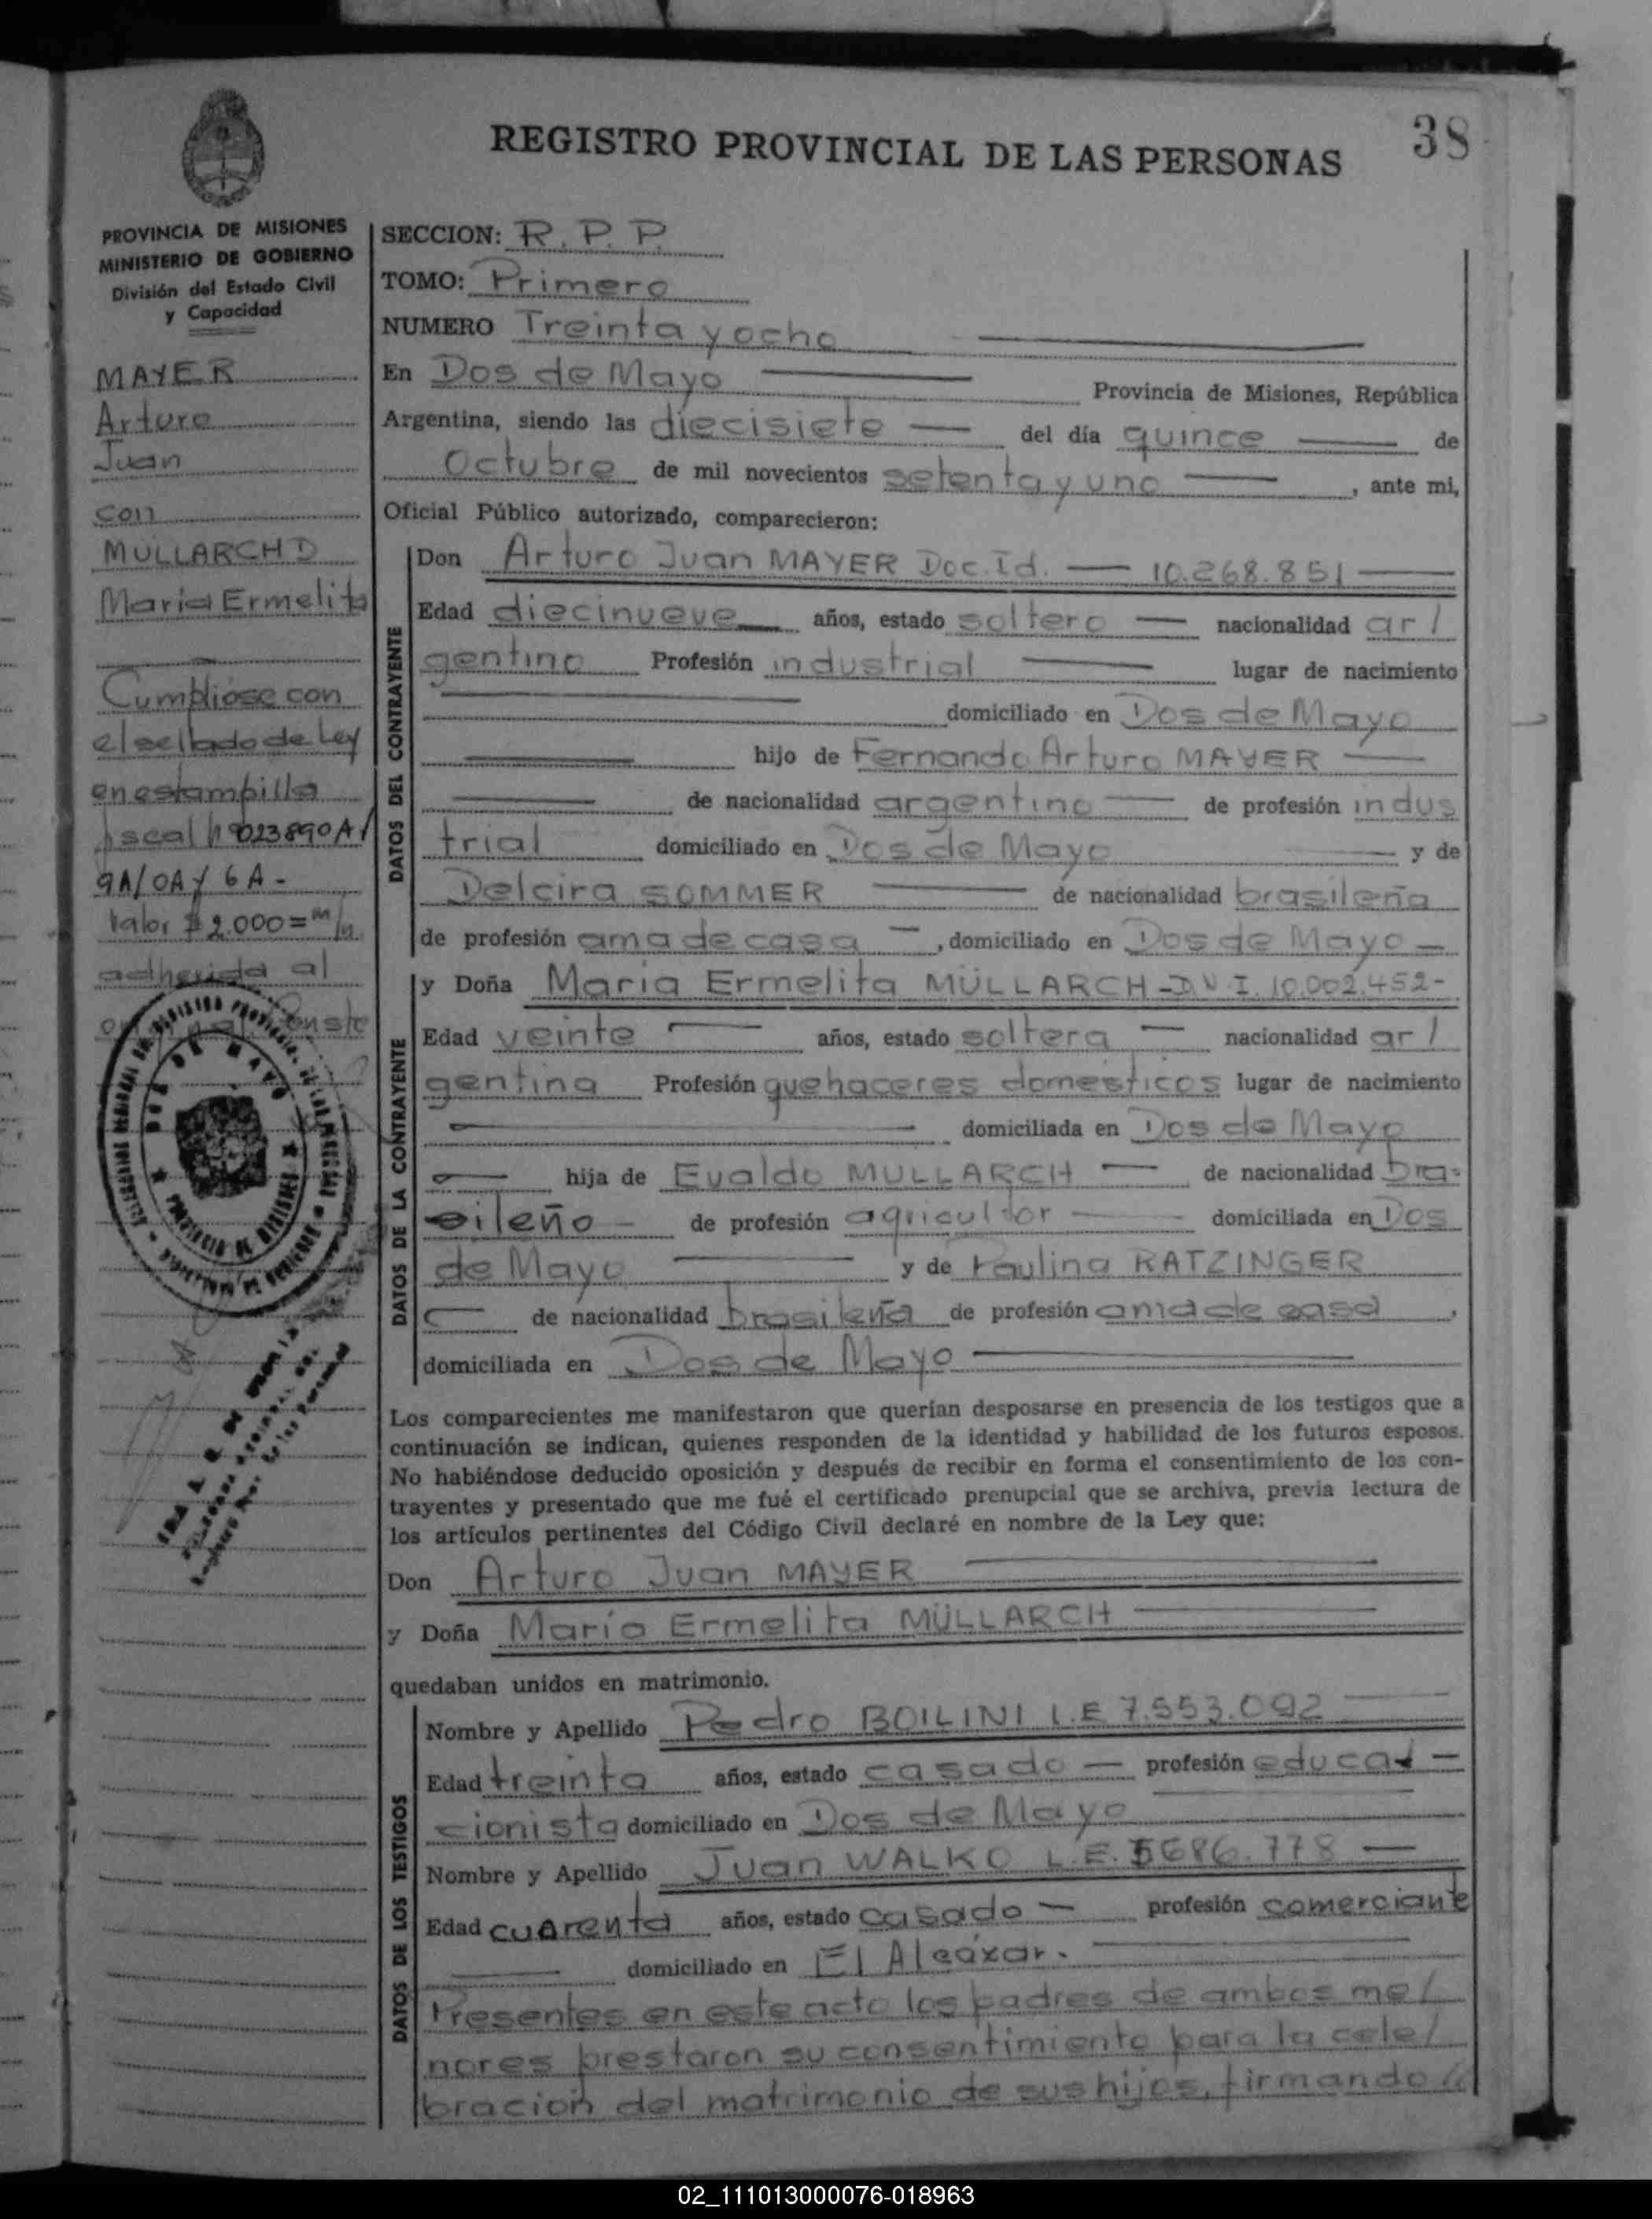 38
REGISTRO PROVINCIAL DE LAS PERSONAS
PROVINCIA DE MISIONES
MINISTERIO DE GOBIERNO
División del Estado Civil
y Capacidad
MAYER
Arturo
Juan
con
MULLARCHD
Maria Ermelita
Cumpliose con
el sellado de Ley
en estampilla
fiscal nº 023890A/
9A/0A y 6A-
Valor $ 2.000= m/n
adherida al
Conste
DOS DE MAYO
PROVINCIA DE MISIONES
SECCION: R. P. P.
TOMO: Primero
NUMERO Treinta y ocho
En Dos de Mayo Provincia de Misiones, República
Argentina, siendo las diecisiete del día quince de
Octubre de mil novecientos setenta y uno, ante mi,
Oficial Público autorizado, comparecieron:
DATOS DEL CONTRAYENTE
Don Arturo Juan MAYER Doc. Id. — 10.268.851 —
Edad diecinueve años, estado soltero — nacionalidad ar/
gentino Profesión industrial lugar de nacimiento
domiciliado en Dos de Mayo
hijo de Fernando Arturo MAYER —
de nacionalidad argentino — de profesión indus
trial domiciliado en Dos de Mayo — y de
Delcira SOMMER — de nacionalidad brasileña
de profesión ama de casa —, domiciliado en Dos de Mayo —
DATOS DE LA CONTRAYENTE
y Doña Maria Ermelita MÜLLARCH - D.V.I. 10.002.452-
Edad veinte — años, estado soltera — nacionalidad ar/
gentina Profesión quehaceres domesticos lugar de nacimiento
domiciliada en Dos de Mayo
hija de Evaldo MULLARCH — de nacionalidad bra-
sileño - de profesión agricultor — domiciliada en Dos
de Mayo — y de Paulina RATZINGER
de nacionalidad brasileña de profesión ama de casa,
domiciliada en Dos de Mayo —
Los comparecientes me manifestaron que querían desposarse en presencia de los testigos que a
continuación se indican, quienes responden de la identidad y habilidad de los futuros esposos.
No habiéndose deducido oposición y después de recibir en forma el consentimiento de los con-
trayentes y presentado que me fué el certificado prenupcial que se archiva, previa lectura de
los artículos pertinentes del Código Civil declaré en nombre de la Ley que:
Don Arturo Juan MAYER
y Doña María Ermelita MÜLLARCH
quedaban unidos en matrimonio.
DATOS DE LOS TESTIGOS
Nombre y Apellido Pedro BOILINI L.E 7.553.092
Edad treinta años, estado casado — profesión educa -
cionista domiciliado en Dos de Mayo
Nombre y Apellido Juan WALKO L.E. 5686.778 —
Edad cuarenta años, estado casado — profesión comerciante
domiciliado en El Alcázar.
Presentes en este acto los padres de ambos me/
nores prestaron su consentimiento para la cele/
bración del matrimonio de sus hijos, firmando //
02_111013000076-018963